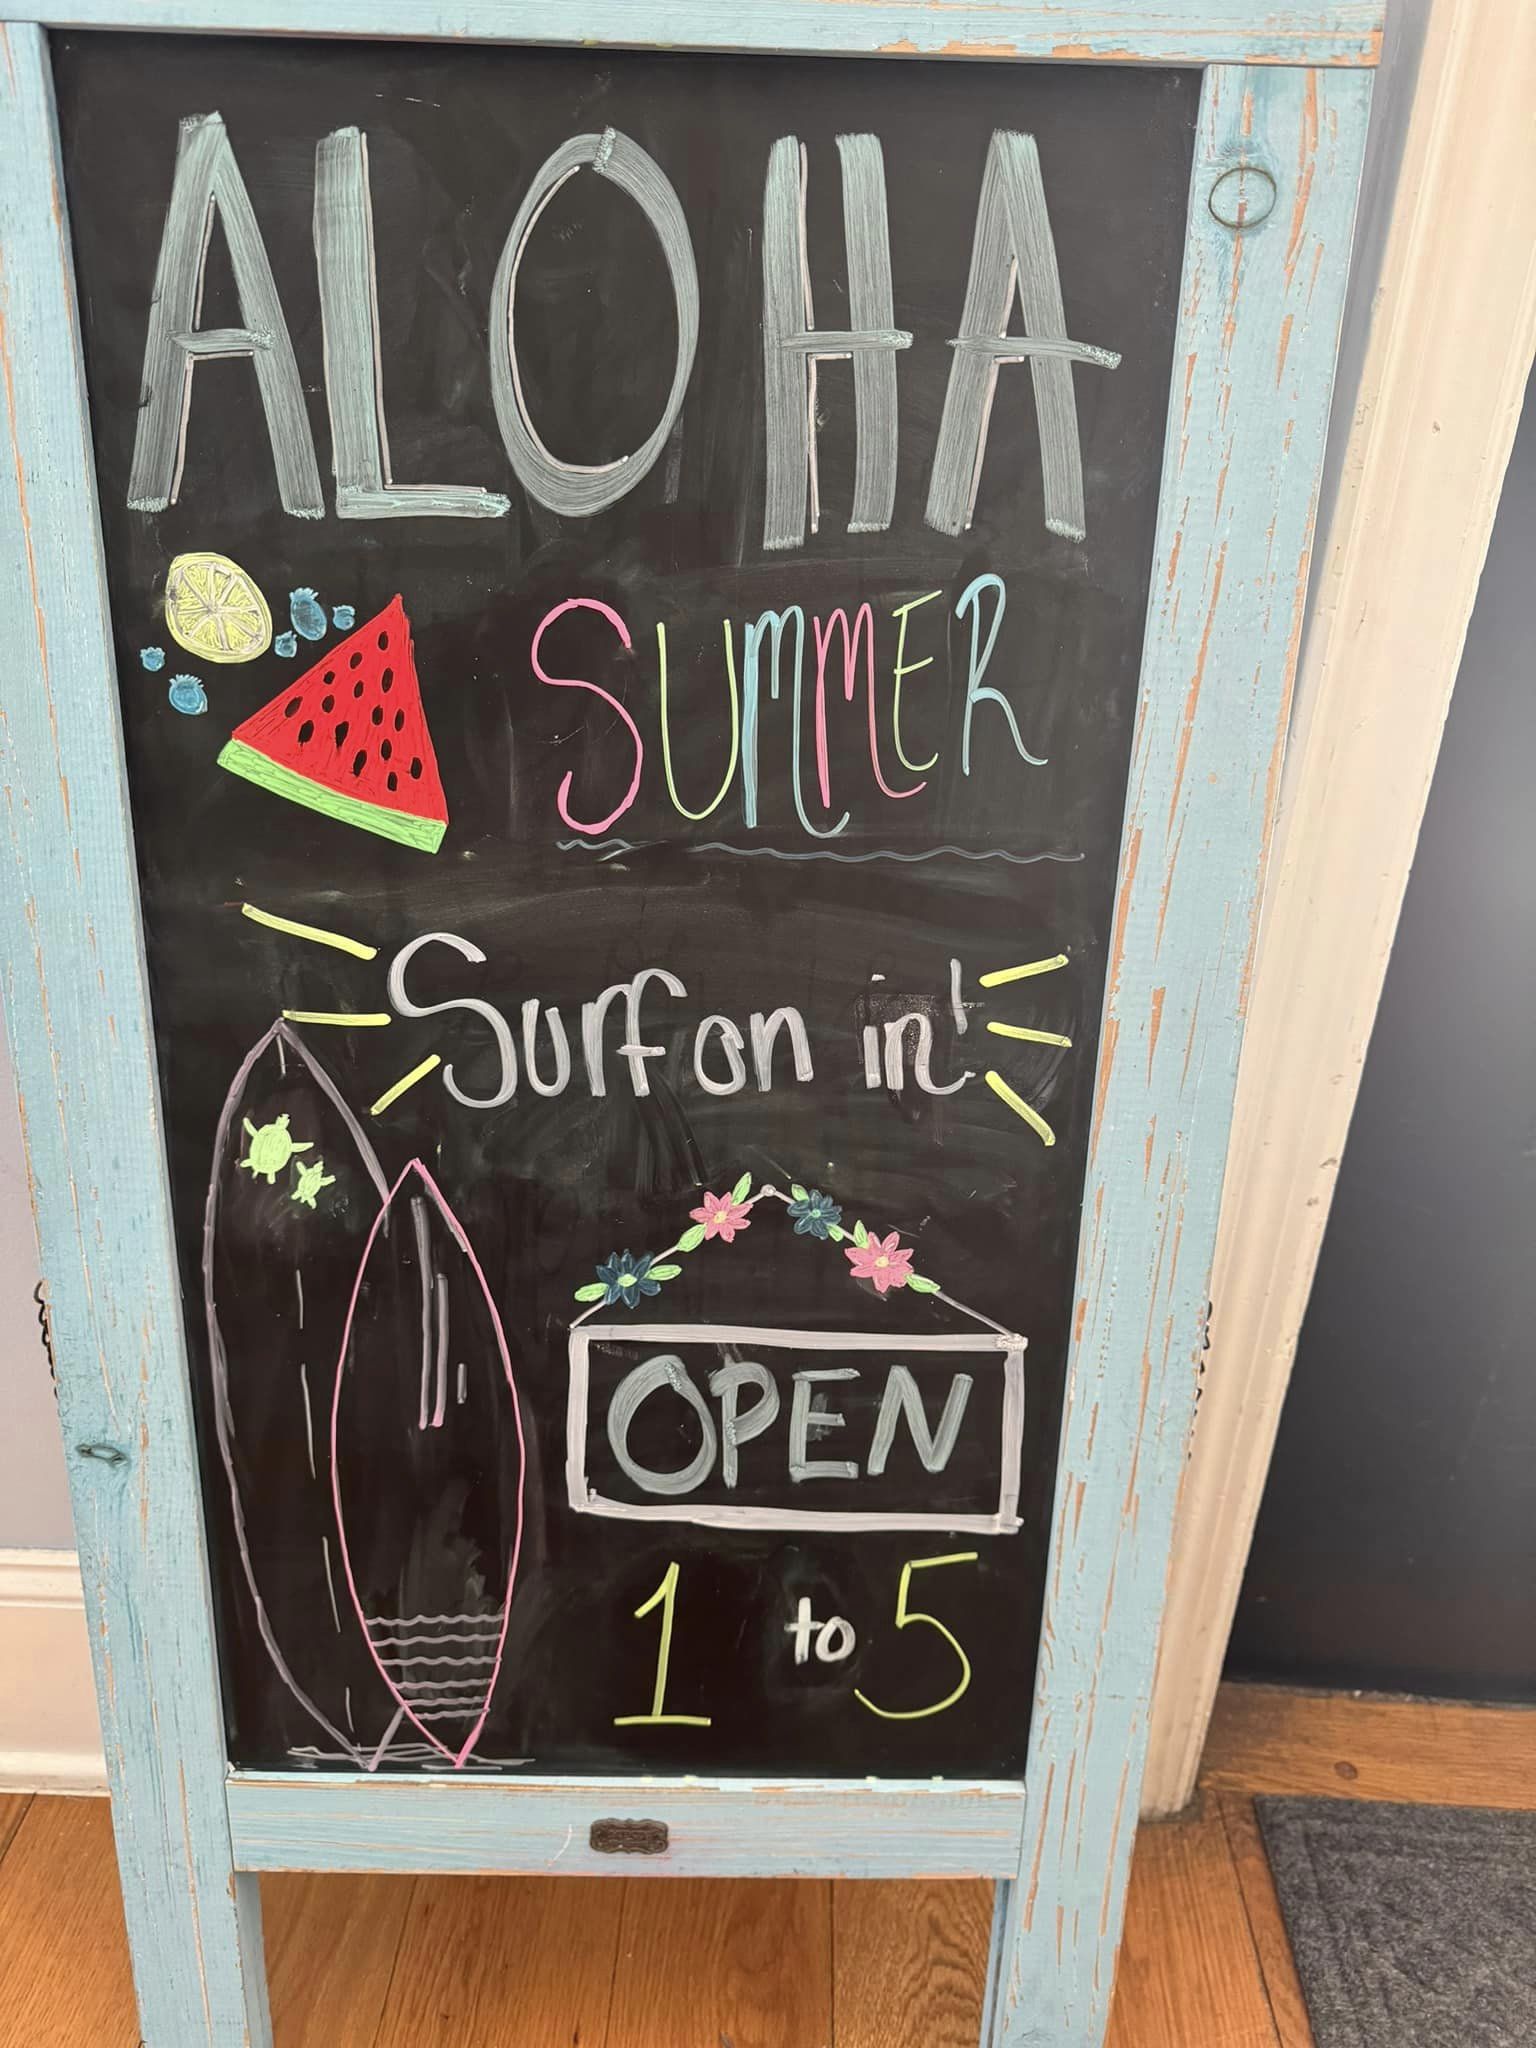 ALOHA
SUMMER
Surf on in'
OPEN
1 to 5